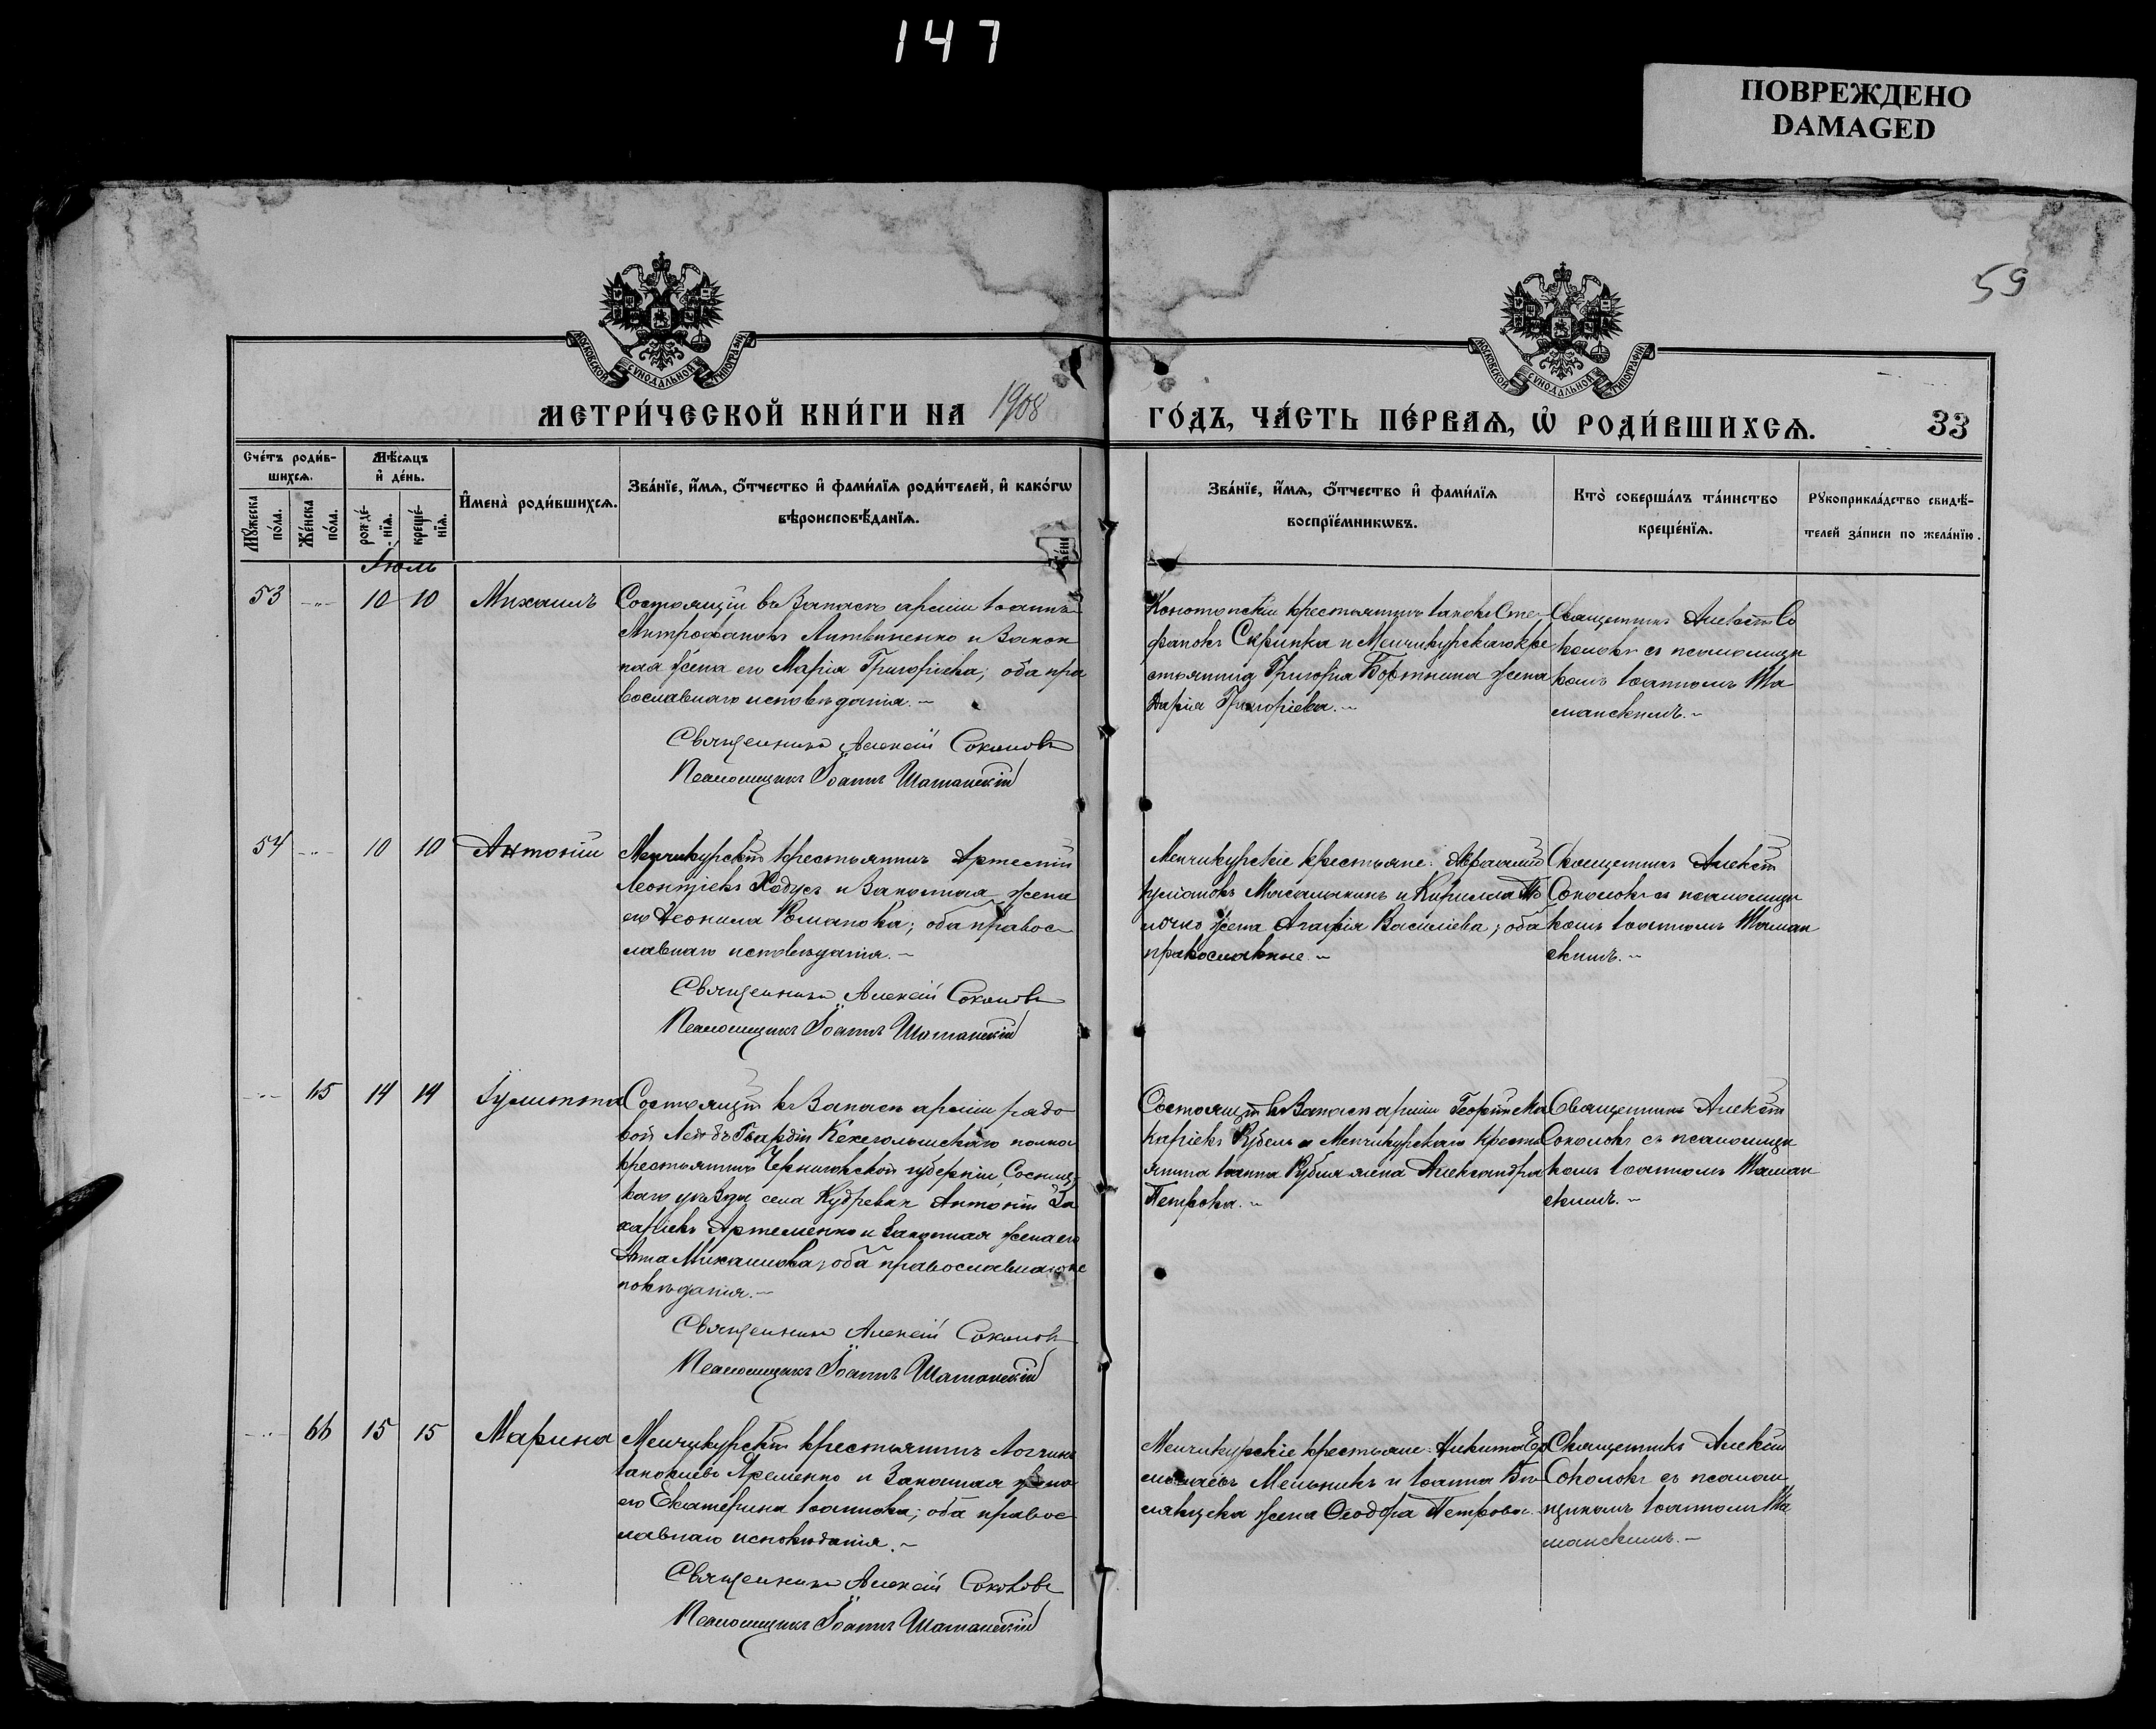 147
ПОВРЕЖДЕНО
DAMAGED
59
МОСКОВСКОЙ СѴНОДАЛЬНОЙ ТИПОГРАФІИ
МОСКОВСКОЙ СѴНОДАЛЬНОЙ ТИПОГРАФІИ
МЕТРИ́ЧЕСКОЙ КНИ́ГИ НА 1908
ГО́ДЪ, ЧА́СТЬ ПЕ́РВАѦ, Ѡ҆ РОДИ́ВШИХСѦ. 33
Сче́тъ роди́в-
шихсѧ.
Мѣ́сѧцъ
и҆ де́нь.
Мꙋ́жеска
по́ла.
Же́нска
по́ла.
рожде́-
нїѧ.
креще́-
нїѧ.
И҆мена̀ роди́вшихсѧ.
Зва́нїе, и҆́мѧ, ѻ҆́тчество и҆ фами́лїѧ роди́телей, и҆ како́гѡ
вѣроисповѣ́данїѧ.
Зва́нїе, и҆́мѧ, ѻ҆́тчество и҆ фами́лїѧ
воспрїе́мникѡвъ.
Кто̀ соверша́лъ та́инство
креще́нїѧ.
Рꙋкоприкла́дство свидѣ́-
телей за́писи по жела́нїю.
Іюль
53 -"- 10 10 Михаилъ
Состоящій въ Запасѣ арміи Іоаннъ
Митрофановъ Литвиненко и Закон
ная жена его Марія Григоріева; оба пра
вославнаго исповѣданія. ~
Священникъ Алексій Соколовъ
Псаломщикъ Іоаннъ Шаманскій
Конотопскій крестьянинъ Іаковъ Сте
фановъ Скрипка и Менчикурскаго кре
стьянина Григорія Бортника жена
Дарія Григоріева. ~
Священникъ Алексій Со
коловъ съ псаломщи
комъ Іоанномъ Ша
манскимъ. ~
54 -"- 10 10 Антоній
Менчикурскій крестьянинъ Артемій
Леонтіевъ Ходусъ и Законная жена
его Неонила Романова; оба правос
лавнаго исповѣданія. ~
Священникъ Алексій Соколовъ
Псаломщикъ Іоаннъ Шаманскій
Менчикурскіе крестьяне:
и Кирилла
жена Агафія Василіева; оба
православные. ~
Священникъ Алексій
Соколовъ съ псаломщи
комъ Іоанномъ Шаман
скимъ. ~
-"- 65 14 14 Іулитта
Состоящій въ Запасѣ арміи рядо
вой Лейбъ Гвардіи Кексгольмскаго полка
крестьянинъ Черниговской губерніи, Сосниц
каго уѣзда села Антоній За
харіевъ Артеменко и Законная жена его
Анна Михаилова; оба православнаго ис
повѣданія. ~
Священникъ Алексій Соколовъ
Псаломщикъ Іоаннъ Шаманскій
Состоящій въ Запасѣ арміи Георгій Ма
каріевъ и Менчикурскаго кресть
янина Іоанна жена Александра
Петрова. ~
Священникъ Алексій
Соколовъ съ псаломщи
комъ Іоанномъ Шаман
скимъ. ~
-"- 66 15 15 Марина
Менчикурскій крестьянинъ Логгинъ
Яременко и Законная жена
его Екатерина Іоаннова; оба правос
лавнаго исповѣданія. ~
Священникъ Алексій Соколовъ
Псаломщикъ Іоаннъ Шаманскій
Менчикурскіе крестьяне: Никита Ер
молаевъ Мельникъ и Іоанна
жена Ѳеодора Петрова.
Священникъ Алексій
Соколовъ съ псалом
щикомъ Іоанномъ Ша
манскимъ. ~